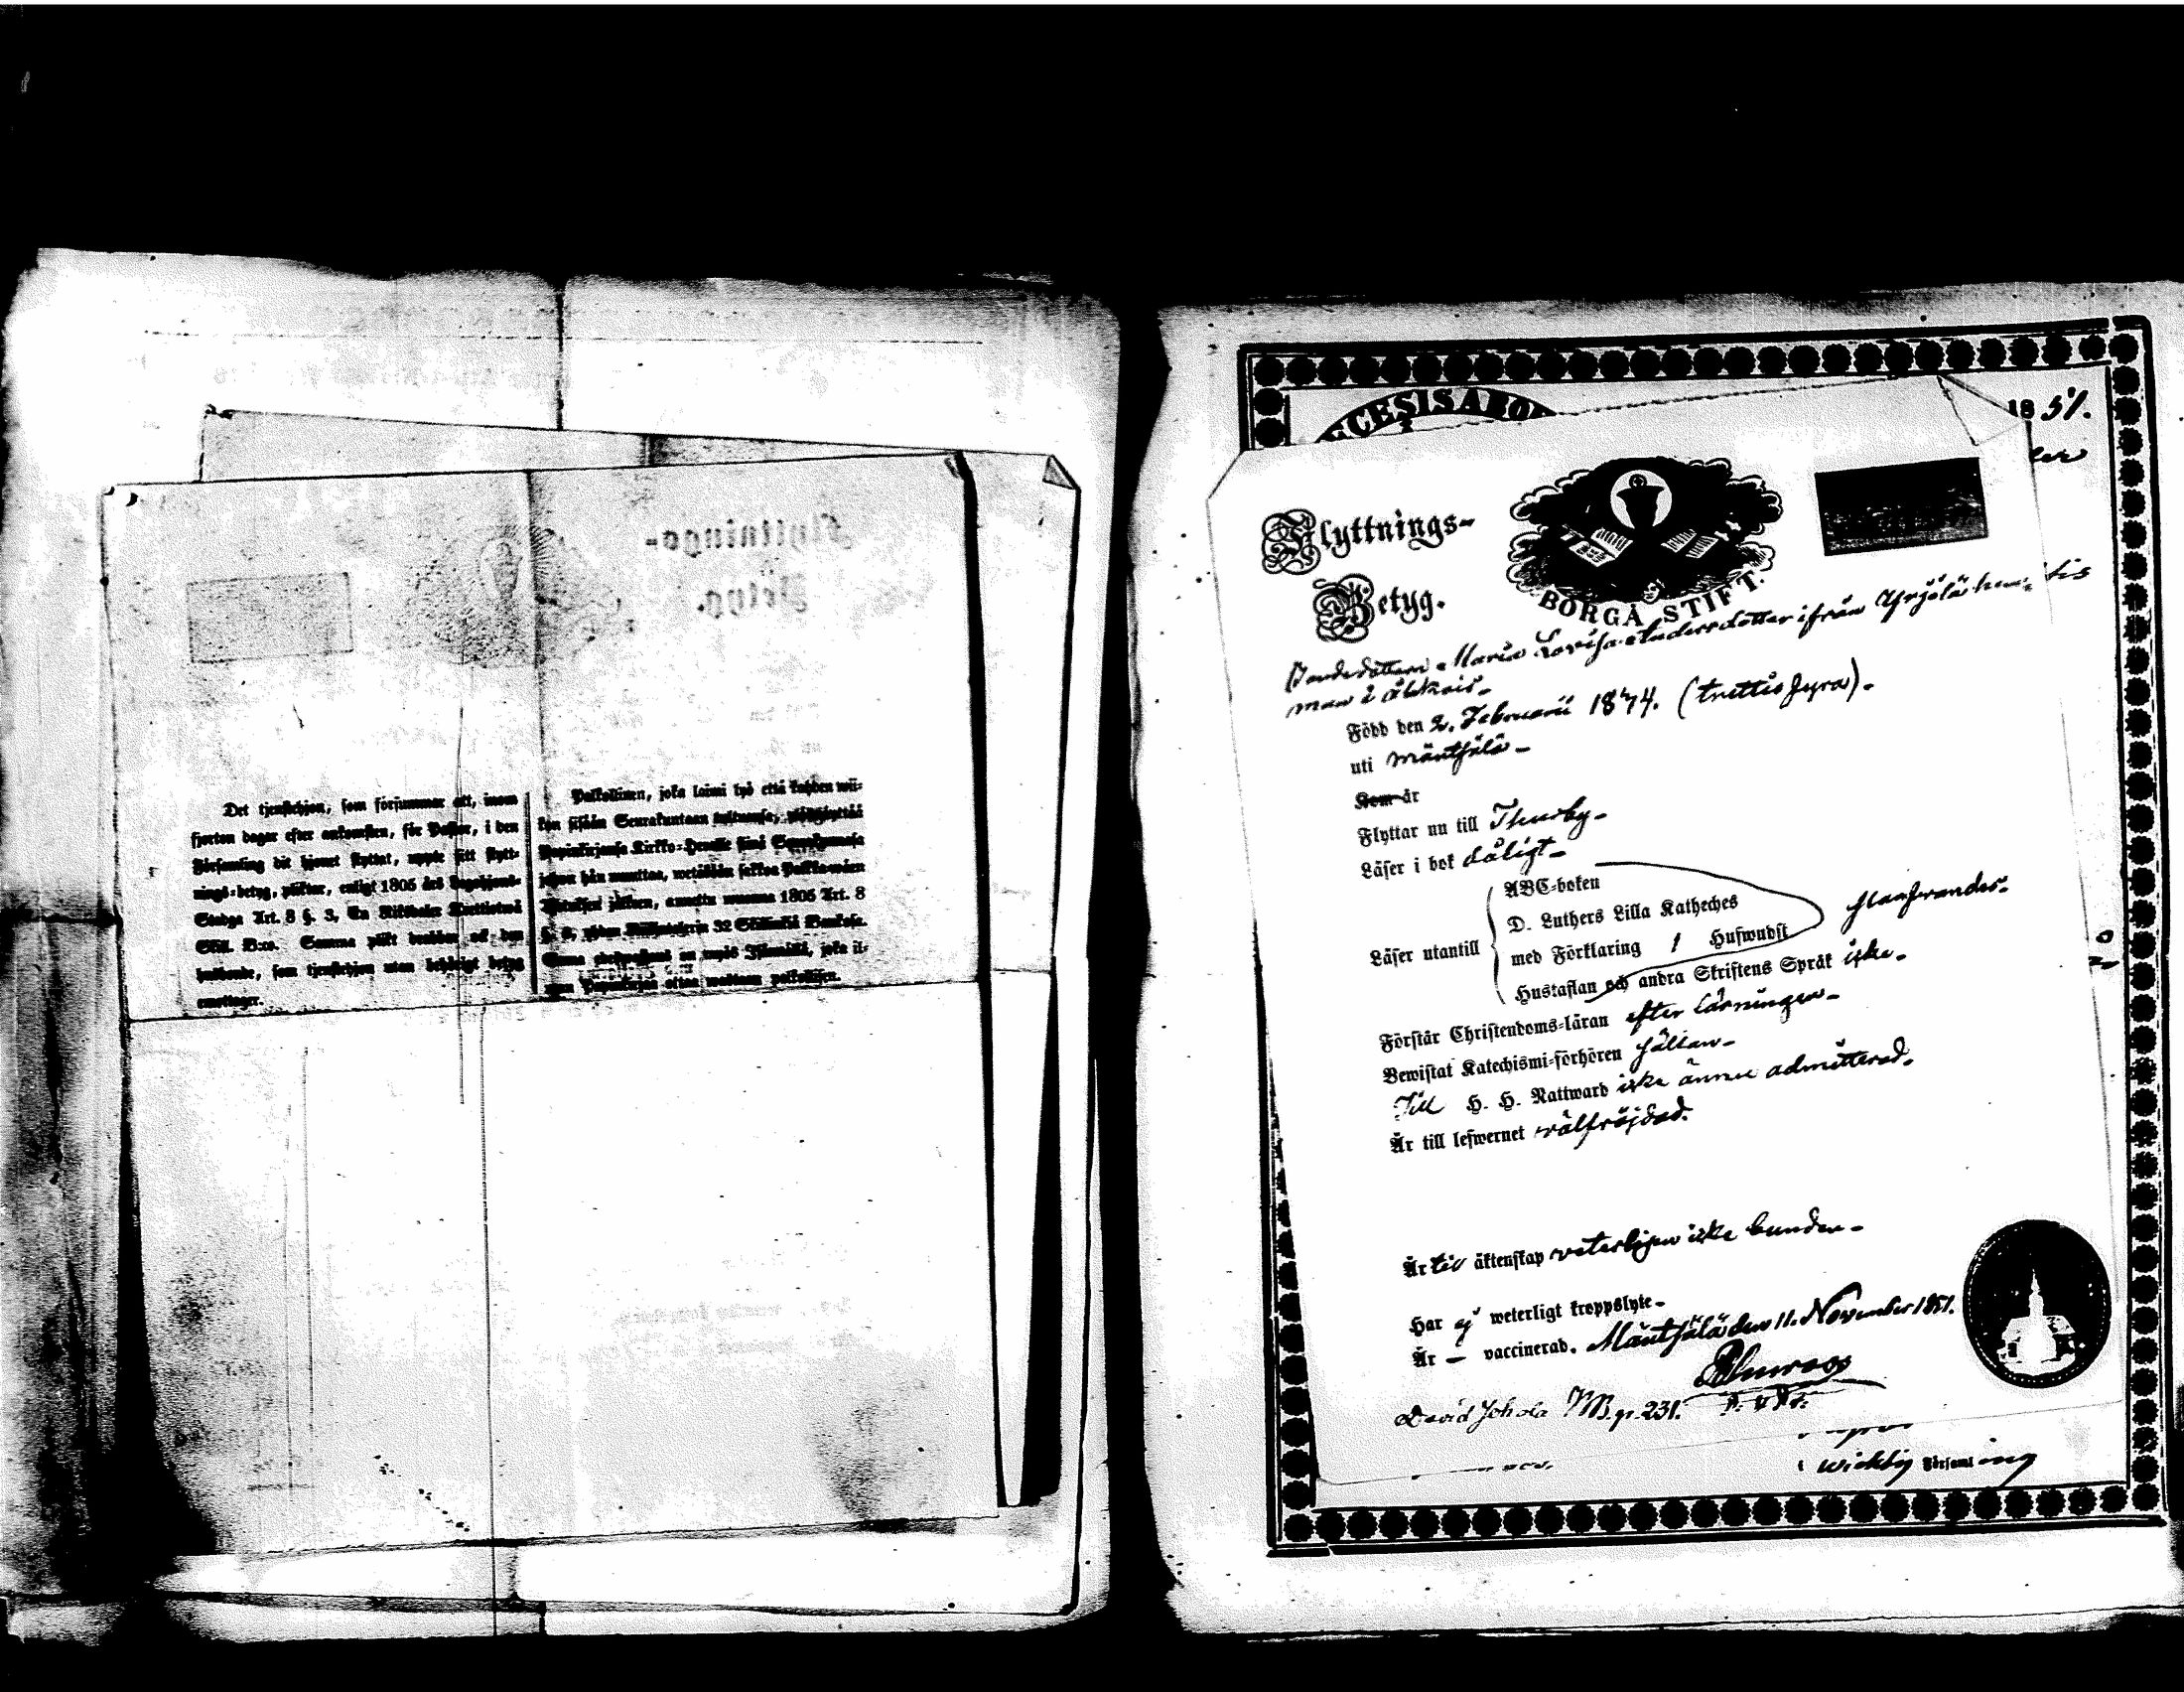 Det tjenstehjon, som försummar att, inom
fjorton dagar efter ankomsten, för Pastor, i den
Församling dit hjonet flyttat, uppte sitt flytt-
nings-betyg, pliktar, enligt 1805 års Legohjons-
Stadga Art. 8 §. 3, En Riksdaler Trettiotwå
Skill. B:co. Samma plikt drabbar ock den
husbonde, som tjenstehjon utan behörigt betyg
emottager.
Palkollinen, joka laimi lyö että kahden wii-
kon sisään Seurakuntaan
Kirkko-Herralle siinä Seurakunnassa
johon hän muuttaa, wetäkään sakkoa Palkkawäen
jälkeen, annettu wuonna 1805 Art. 8
§. 3, yhden 32 Skillinkiä Bankosa.
Sama on myös Isännällä, joka il-
man Papinkirjaa ottaa palkollisen.
DIŒCESIS ABO
18 51.
Flyttnings-
Betyg.
BORGÅ STIFT.
Maria Lovisa Andersdotter ifrån Yrjölä
man i
Född den 2. Februarii 1834. (trettio fyra).
uti Mäntsälä -
Som är
Flyttar nu till Thusby -
Läser i bok dåligt -
ABC-boken
D. Luthers Lilla Katheches
Läser utantill med Förklaring 1 Huswudst
Hustaflan och andra Skriftens Språk icke.
Förstår Christendoms-läran efter läsningen -
Bewistat Katechismi-förhören sällan -
Till H. H. Nattward icke ännu admitterad.
Är till lefwernet wälfrejdad.
Är till äktenskap veterligen icke bunden -
Har ej weterligt kroppslyte -
Är - vaccinerad. Mäntsälä den 11. November 1851.
David Johola KB. p. 231.
Wichtis
Församl ing